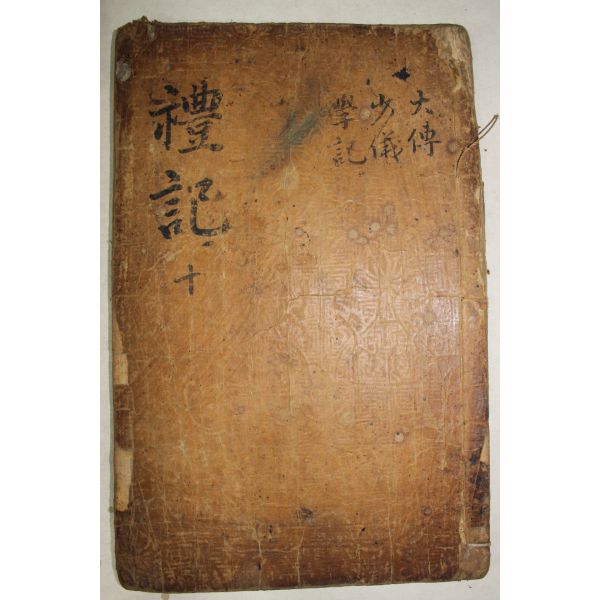 禮記
十
大傳
少儀
學記